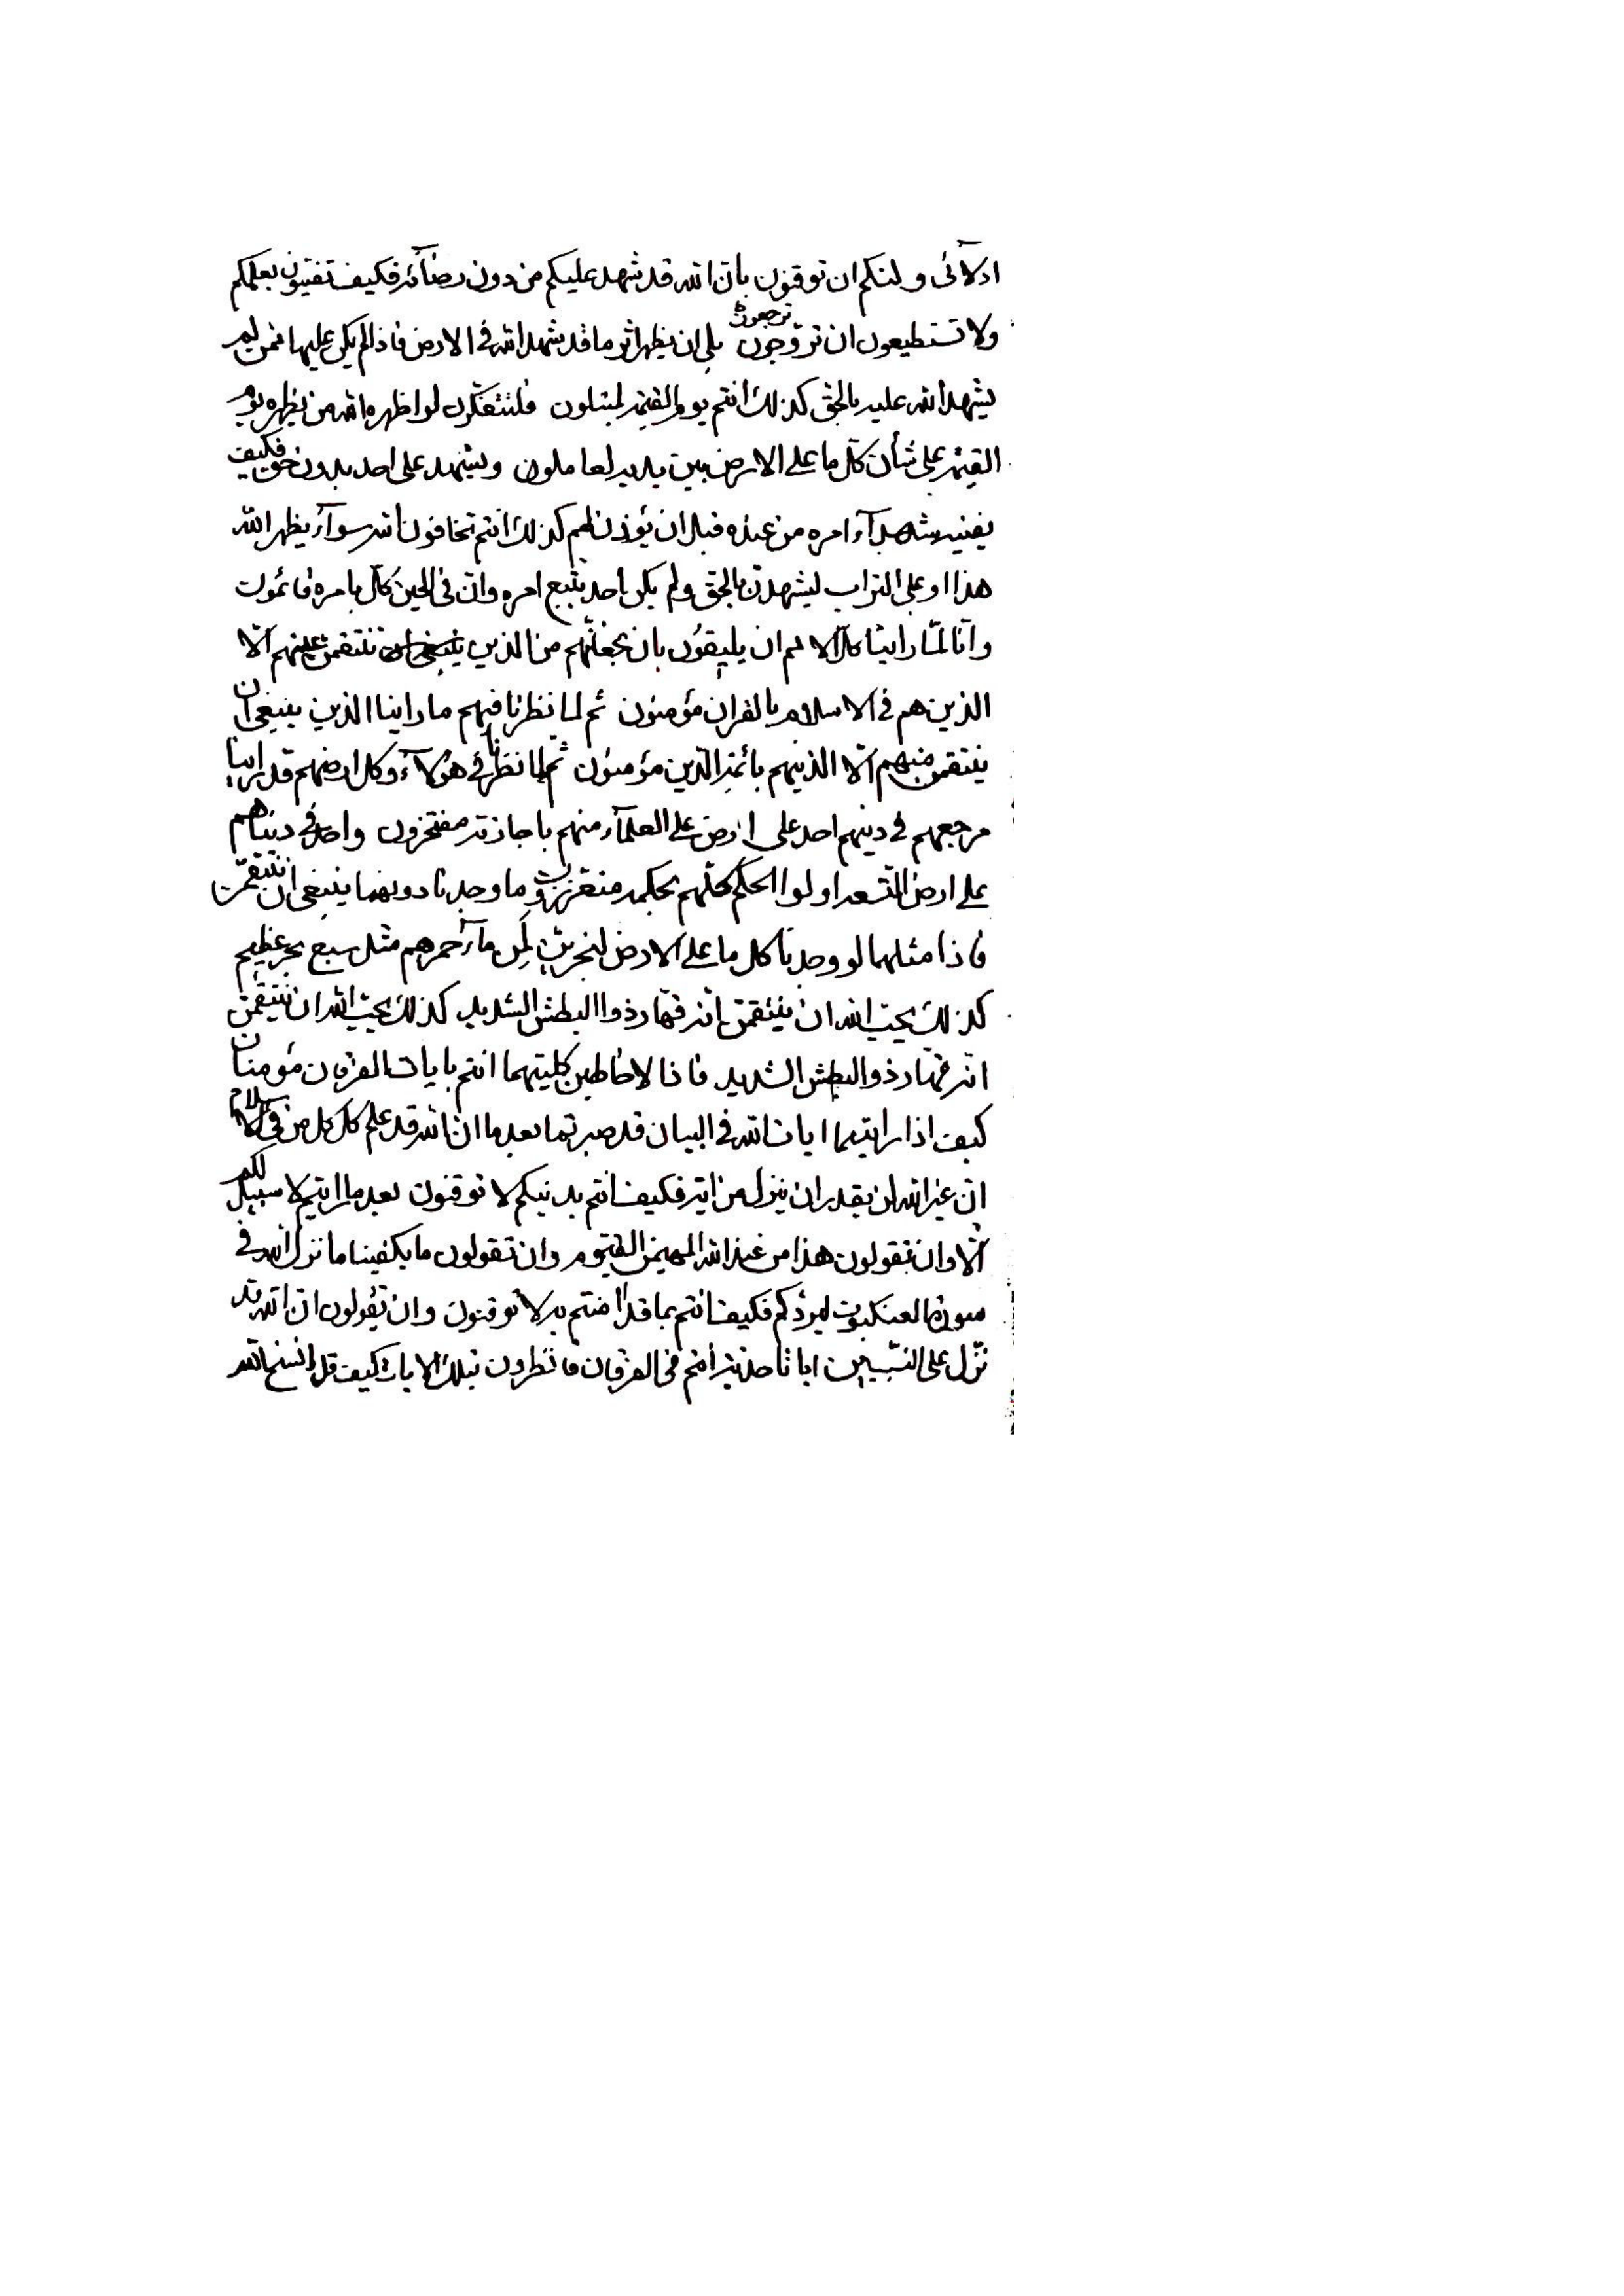 ادلائى ولنكم ان توقنون بان الله قد شهد عليكم من دون رضائه فكيف تفتيون بعلمكم
ولا تستطيعون ان تروجون ترجعون بلى ان يظهر اثر ما قد شهد الله فى الارض فاذا لم يكن عليها فمن لم
يشهد الله عليه بالحق كذلك انتم يوم القيمه لمبتلون فلتتفكرن لو اظهره الله من يظهره يوم
القيمه على شأن كل ما على الارض بين يديه لعاملون ويشهد على احد بدون حق فكيف
يفنيه شهدآء امره من عنده قبل ان يؤذن لهم كذلك انتم تخافون الله سوآء يظهر الله
هذا او على التراب ليشهدن بالحق ولم يكن احد يتبع امره وان فى الحين كل بامره قائمون
وانا لما راينا كل الامم ان يليقون بان نجعلنهم من الذين ينتقمن عنهم الا
الذين هم فى الاسلام بالقران مؤمنون ثم لما نظرنا فيهم ما راينا الذين ينبغى ان
ينتقمن منهم الا الذينهم بائمة الدين مؤمنون ثم لما نظرنا فى هؤلآء وكل ارضهم قد راينا
مرجعهم فى دينهم احد على ارض على العلمآء منهم باجازته مفتخرون واحد فى دنياهم
على ارض التسعه اولوا الحكم كلهم بحكمه متعززون وما وجدنا دونهما ينبغى ان ننتقمن
فاذا مثلهما لو وجدنا كل ما على الارض لنجرين من مآء حمرهم مثل سبع بحر عظيم
كذلك يحب الله ان ينتقمن انه قهار ذوا البطش الشديد كذلك يحب الله ان ننتقمن
انه قهار ذو البطش الشديد فاذا لاخاطبن كليتهما انتم بايات الفرقان مؤمنان
كيف اذا رايتما ايات الله فى البيان قد صبرتما بعد ما ان الله قد علم كل من فى الاسلام
ان غير الله لن يقدر ان ينزل من اية فكيف انتم بدنيكم لا توقنون بعد ما رايتم لا سبيل لكم
الا وان تقولون هذا من عند الله المهيمن القيوم وان تقولون ما يكفينا ما نزل الله فى
سورة العنكبوت ليردكم فكيف انتم بما قد امنتم به لا توقنون وان تقولون ان الله قد
نزل على النبيين اياتا حينئذ انتم فى الفرقان فانظرون تلك الايات كيف قد انسخ الله